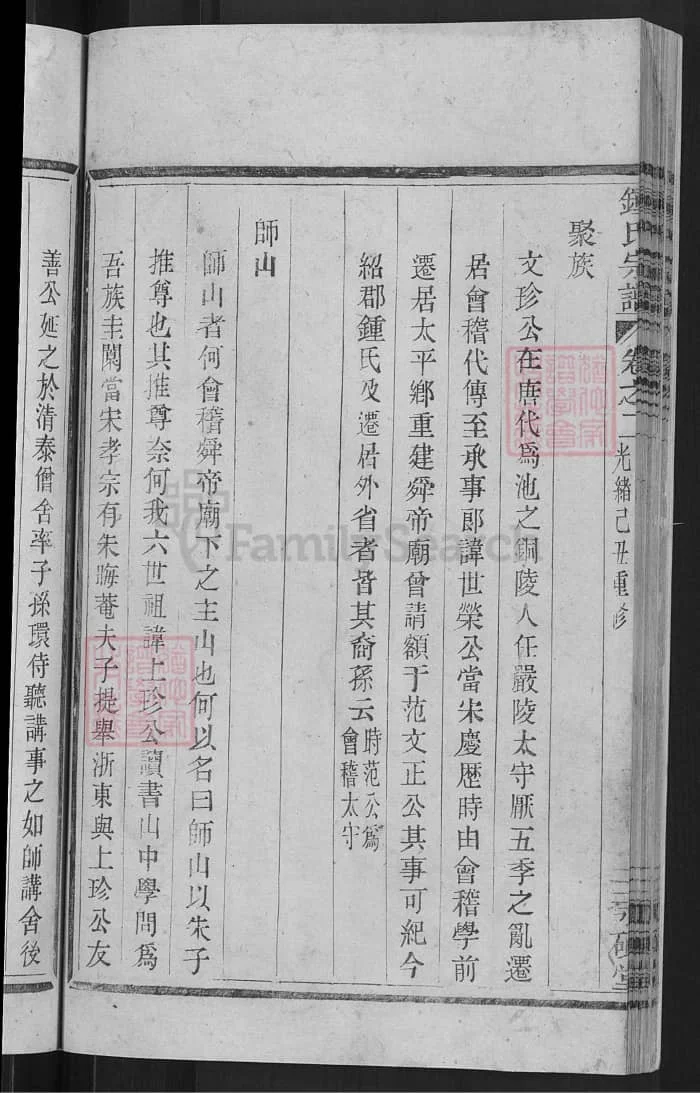 鍾氏宗譜
卷之二
光緒己丑重修
聚族
文珍公在唐代為池之銅陵人任嚴陵太守厭五季之亂遷
居會稽代傳至承事郎諱世榮公當宋慶歷時由會稽學前
遷居太平鄉重建舜帝廟曾請額于范文正公其事可紀今
紹郡鍾氏及遷居外省者皆其裔孫云時范公為
會稽太守
師山
師山者何會稽舜帝廟下之主山也何以名曰師山以朱子
推尊也其推尊奈何我六世祖諱上珍公讀書山中學問為
吾族圭闑當宋孝宗有朱晦菴夫子提舉浙東與上珍公友
善公延之於清泰僧舍率子孫環侍聽講事之如師講舍後
FamilySearch